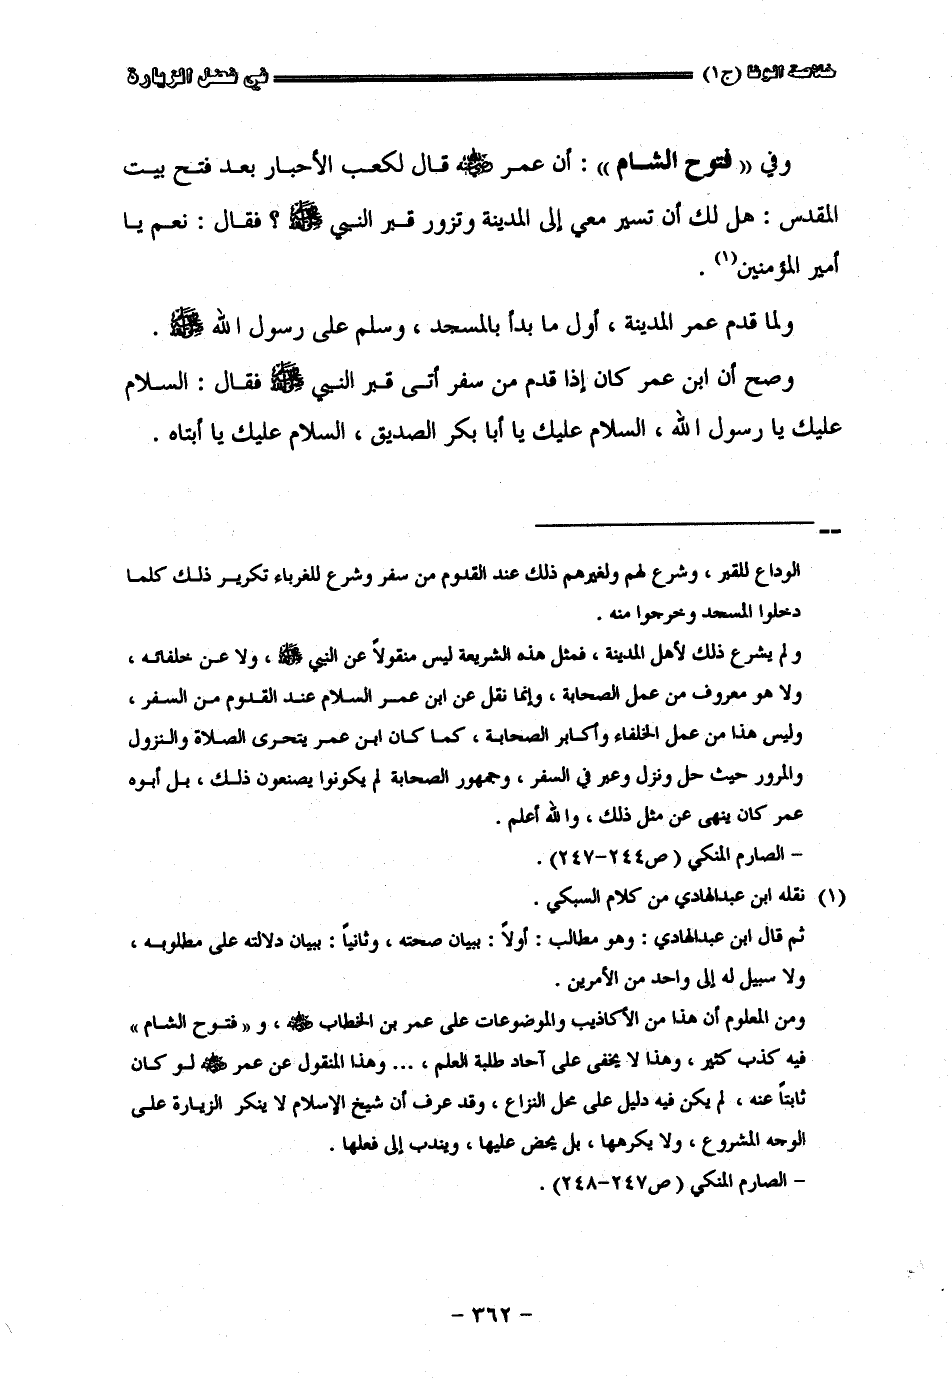 خلاصة الوفا (ج١) في فضل الزيارة
وفي « فتوح الشام » : أن عمر ﵁ قال لكعب الأحبار بعد فتح بيت
المقدس : هل لك أن تسير معي إلى المدينة وتزور قبر النبي ﷺ ؟ فقال : نعم يا
أمير المؤمنين(١) .
ولما قدم عمر المدينة ، أول ما بدأ بالمسجد ، وسلم على رسول الله ﷺ .
وصح أن ابن عمر كان إذا قدم من سفر أتى قبر النبي ﷺ فقال : السلام
عليك يا رسول الله ، السلام عليك يا أبا بكر الصديق ، السلام عليك يا أبتاه .
الوداع للقبر ، وشرع لهم ولغيرهم ذلك عند القدوم من سفر وشرع للغرباء تكرير ذلك كلما
دخلوا المسجد وخرجوا منه .
ولم يشرع ذلك لأهل المدينة ، فمثل هذه الشريعة ليس منقولاً عن النبي ﷺ ، ولا عن خلفائه ،
ولا هو معروف من عمل الصحابة ، وإنما نقل عن ابن عمر السلام عند القدوم من السفر ،
وليس هذا من عمل الخلفاء وأكابر الصحابة ، كما كان ابن عمر يتحرى الصلاة والنزول
والمرور حيث حل ونزل وعبر في السفر ، وجمهور الصحابة لم يكونوا يصنعون ذلك ، بل أبوه
عمر كان ينهى عن مثل ذلك ، والله أعلم .
– الصارم المنكي ( ص٢٤٤–٢٤٧) .
(١) نقله ابن عبدالهادي من كلام السبكي .
ثم قال ابن عبدالهادي : وهو مطالب : أولاً : ببيان صحته ، وثانياً : ببيان دلالته على مطلوبه ،
ولا سبيل له إلى واحد من الأمرين .
ومن المعلوم أن هذا من الأكاذيب والموضوعات على عمر بن الخطاب ﵁ ، و « فتوح الشام »
فيه كذب كثير ، وهذا لا يخفى على آحاد طلبة العلم ، ... وهذا المنقول عن عمر ﵁ لو كان
ثابتاً عنه ، لم يكن فيه دليل على محل النزاع ، وقد عرف أن شيخ الإسلام لا ينكر الزيارة على
الوجه المشروع ، ولا يكرهها ، بل يحض عليها ، ويندب إلى فعلها .
– الصارم المنكي ( ص٢٤٧–٢٤٨) .
– ٣٦٢ –